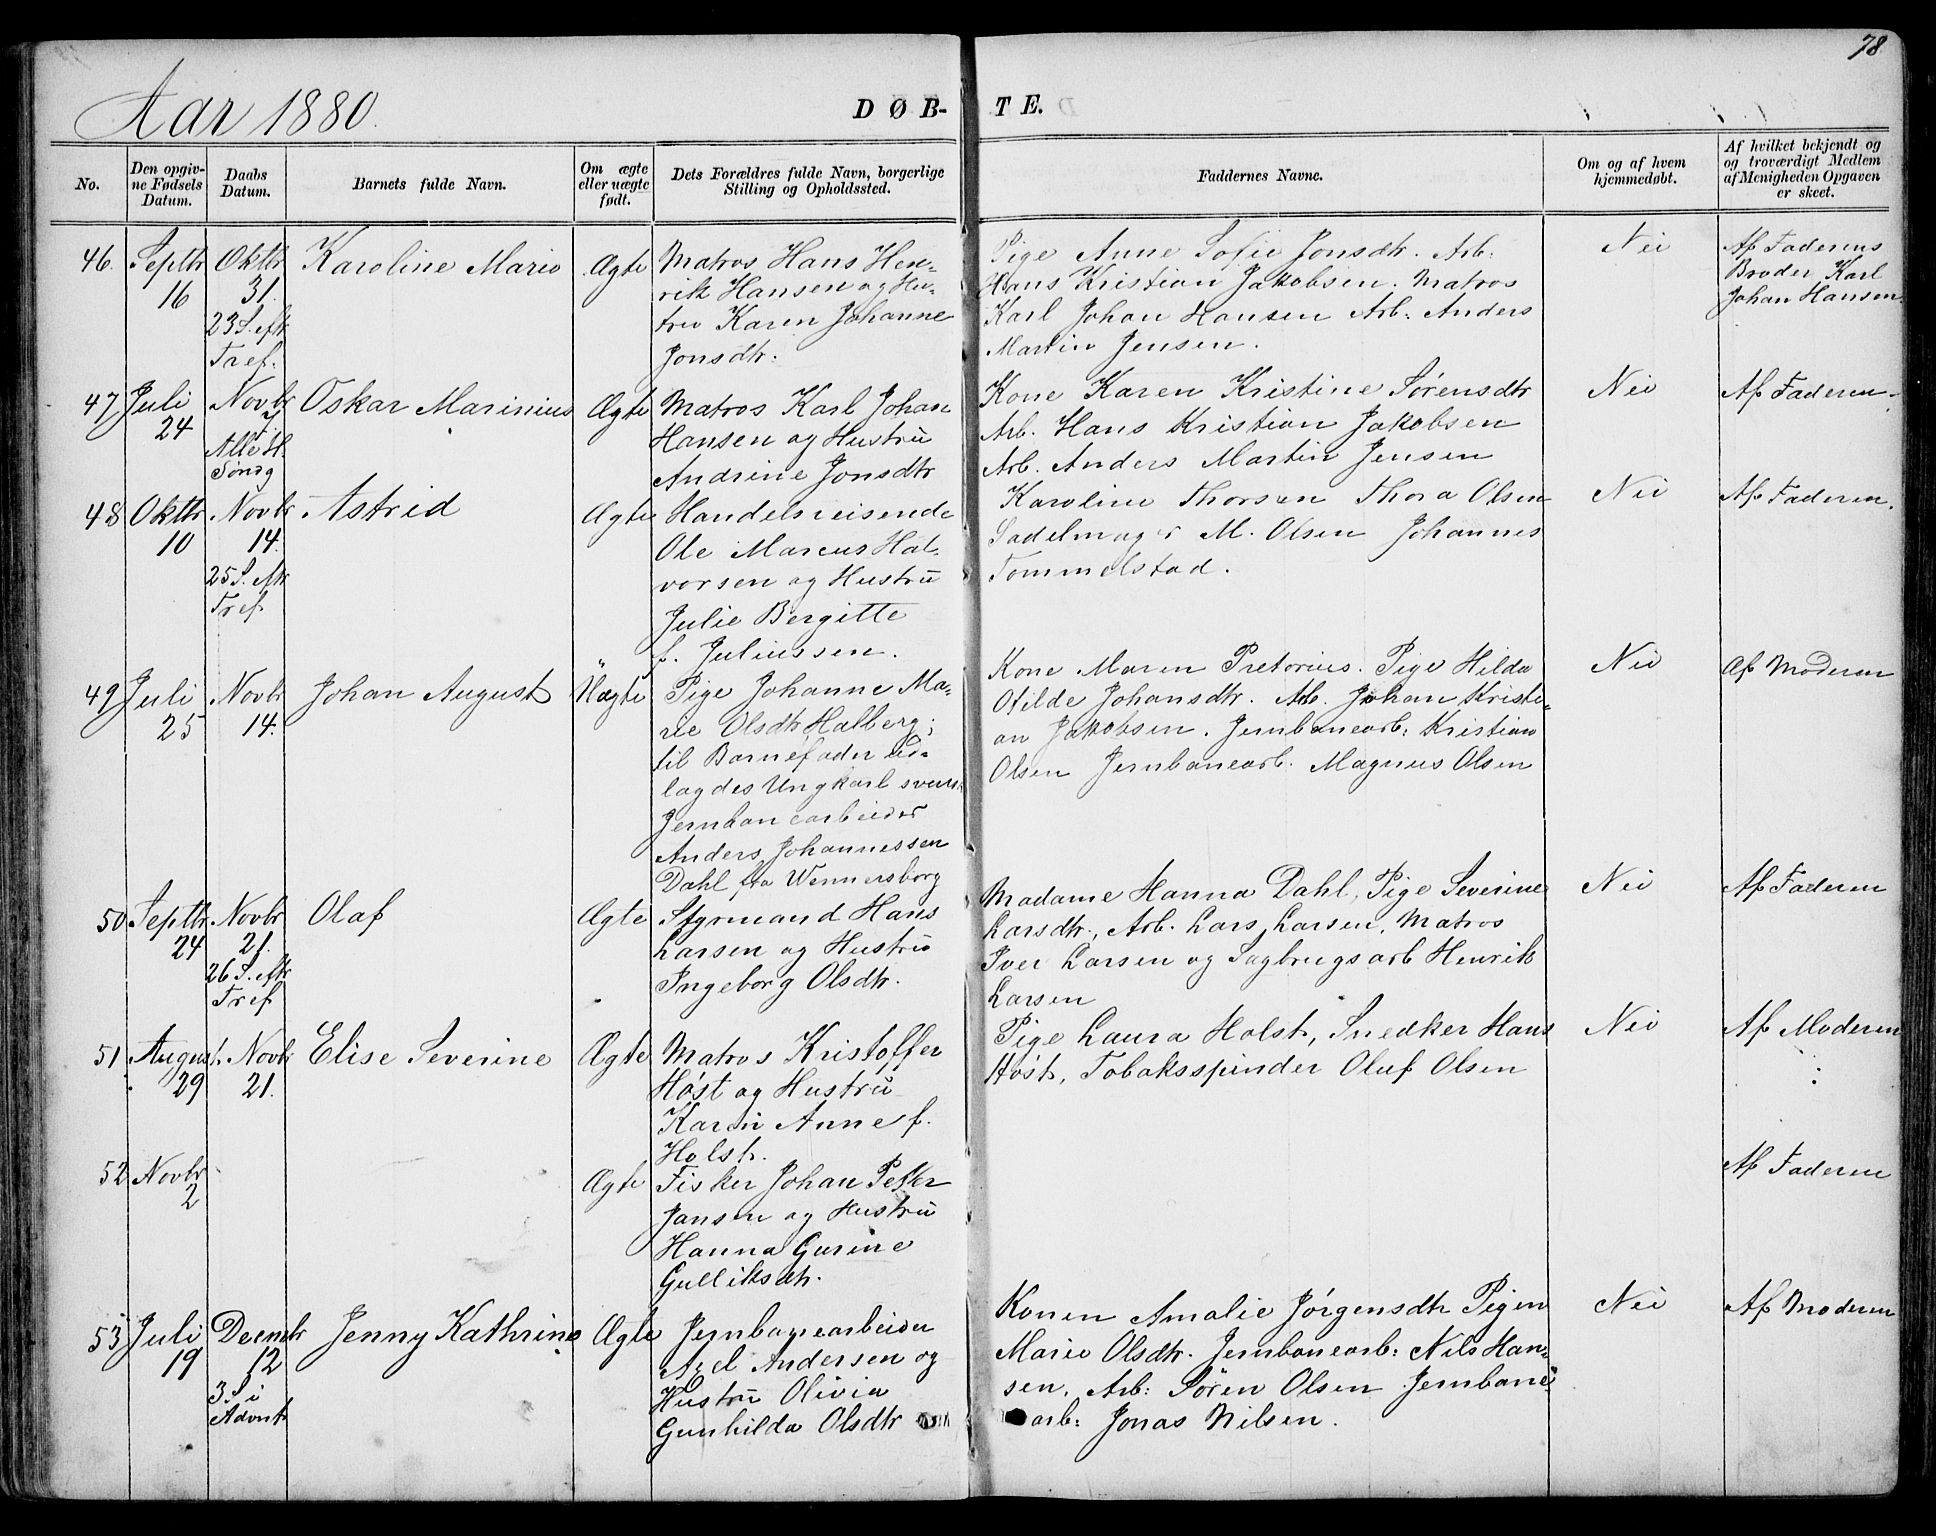 78
Aar 1880.
DØB-
TE.
No.
Den opgiv-
ne Fødsels
Datum.
Daabs
Datum.
Barnets fulde Navn.
Om ægte
eller uægte
født.
Dets Forældres fulde Navn, borgerlige
Stilling og Opholdssted.
Faddernes Navne.
Om og af hvem
hjemmedøbt.
Af hvilket bekjendt og
og troværdigt Medlem
af Menigheden Opgaven
er skeet.
46.
Septbr
16
Oktbr
31.
23 S. eftr
Tref.
Karoline Marie
Ægte
Matros Hans Hen-
rik Hansen og Hu-
stru Karen Johanne
Jonsdtr.
Pige Anne Sofie Jonsdtr. Arb.
Hans Kristian Jakobsen. Matros
Karl Johan Hansen Arb: Anders
Martin Jensen.
Nei
Af Faderens
Broder Karl
Johan Hansen.
47
Juli
24
Novbr
7
Alle H.
Søndg
Oskar Marinius
Ægte
Matros Karl Johan
Hansen og Hustru
Andrine Jonsdtr
Kone Karen Kristine Sørensdtr
Arb. Hans Kristian Jakobsen
Arb. Anders Martin Jensen
Nei
Af Faderen
48
Oktbr
10
Novbr
14.
25 S. eftr
Tref
Astrid
Ægte
Handelsreisende
Ole Marcus Hal-
vorsen og Hustru
Julie Bergitte
f. Juliussen.
Karoline Thorsen Thora Olsen
Sadelmager M. Olsen Johannes
Tommelstad.
Nei
Af Faderen.
49
Juli
25
Novbr
14.
Johan August
Uægte
Pige Johanne Ma-
rie Olsdtr Halberg;
til Barnefader ud-
lagdes Ungkarl svensk
Jernbanearbeider
Anders Johannessen
Dahl fra Wennersborg
Kone Maren Pretorius. Pige Hilda
Otilde Johansdtr. Arb. Johan Kristi-
an Jakobsen. Jernbanearb: Kristian
Olsen Jernbanearb. Magnus Olsen
Nei
Af Moderen
50
Septbr
24
Novbr
21.
26 S. eftr
Tref
Olaf
Ægte
Styrmand Hans
Larsen og Hustru
Ingeborg Olsdtr.
Madame Hanna Dahl, Pige Severine
Larsdtr., Arb. Lars Larsen, Matros
Iver Larsen og Sagbrugsarb Henrik
Larsen
Nei
Af Faderen
51
August.
29
Novbr
21.
Elise Severine
Ægte
Matros Kristoffer
Høst og Hustru
Karen Anne f.
Holst.
Pige Laura Holst, Snedker Hans
Høst, Tobaksspinder Oluf Olsen
Nei
Af Moderen
52
Novbr
2
Ægte
Fisker Johan Peter
Jansen og Hustru
Hanna Gurine
Gulliksdtr.
Af Faderen
53
Juli
19
Decmbr
12
3 S. i
Advent
Jenny Kathrine
Ægte
Jernbanearbeider
Axel Andersen og
Hustru Olivia
Gunhilda Olsdtr
Konen Amalie Jørgensdtr Pigen
Marie Olsdtr. Jernbanearb: Nils Han-
sen. Arb: Søren Olsen Jernbane
arb: Jonas Nilsen.
Nei
Af Moderen